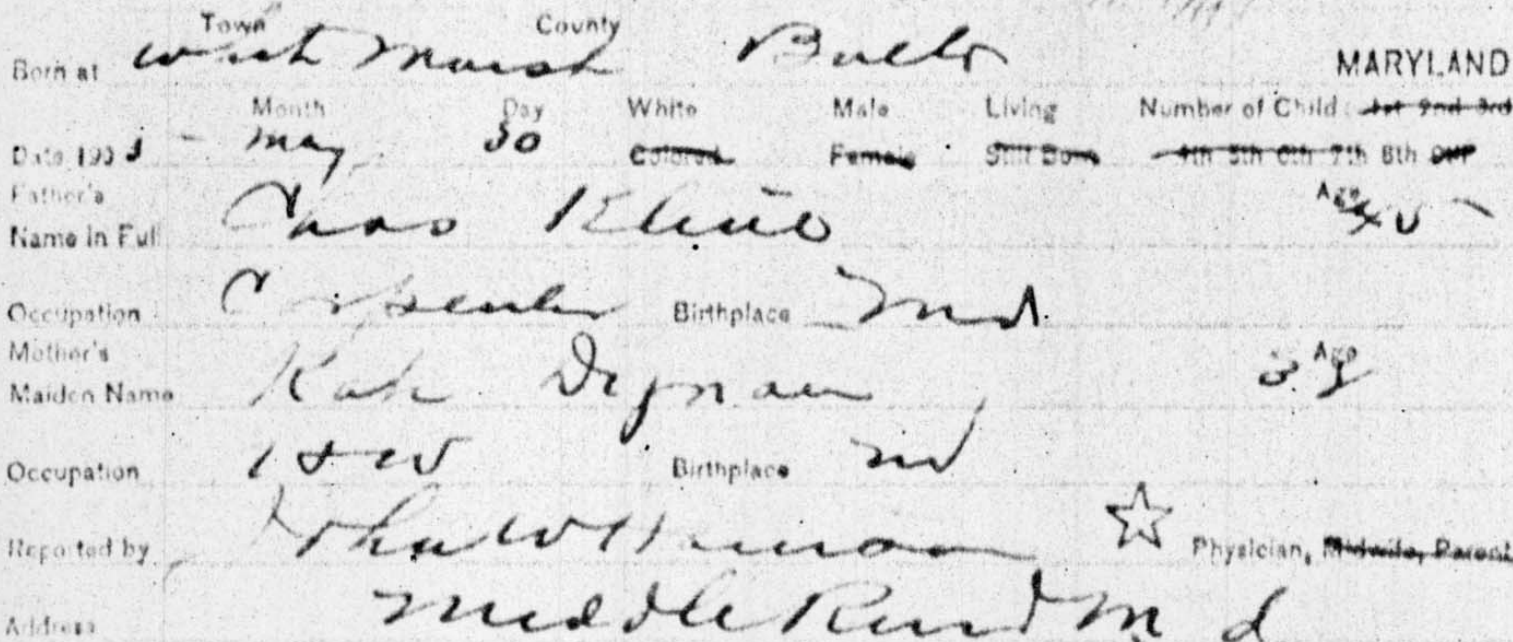 Town County
Born at Marsh Balto MARYLAND
Month Day White Male Living Number of Child: 1st 2nd 3rd
Date 190 May 30 Colored Female Still Born 4th 5th 6th 7th 8th 9th
Father's Age
Name in Full Chas Kline 40
Occupation Carpenter Birthplace Md
Mother's Age
Maiden Name Kate Dignan
Occupation HW Birthplace Md
Reported by John W Harrison ☆ Physician, Midwife, Parent
Address Middle River Md